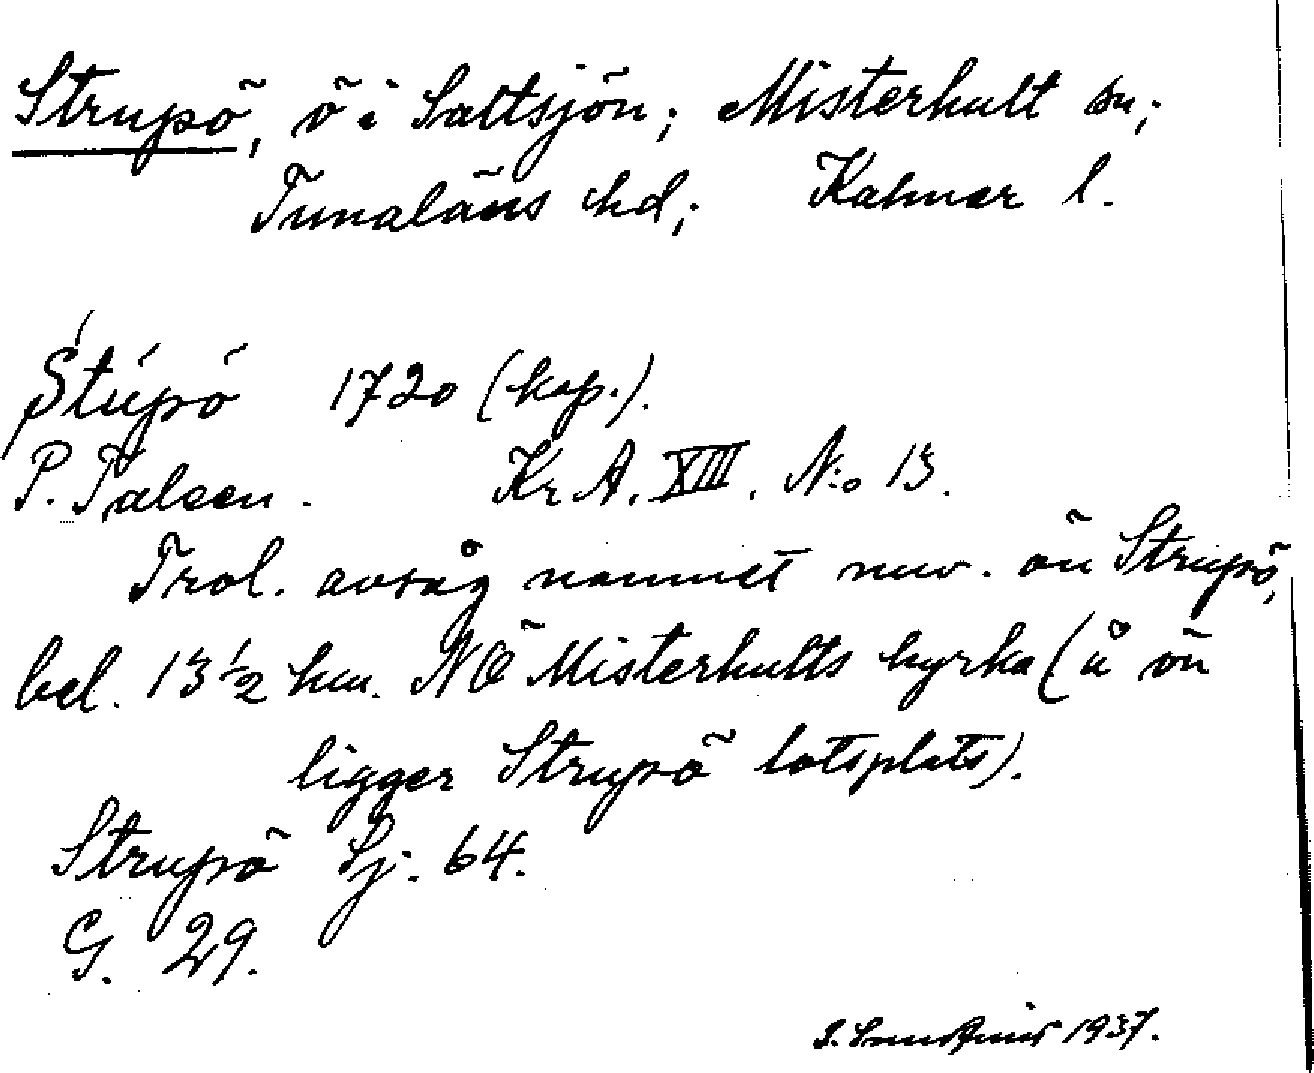 Strupö, ö i Saltsjön; Misterhult sn;
Tunaläns hd; Kalmar l.
Stúpó 1720 (kop.).
P. Palsen. Kr A. XIII. N:o 13.
Trol. avsåg namnet nuv. ön Strupö,
bel. 13 1/2 km. NÖ Misterhults kyrka (å ön
ligger Strupö lotsplats).
Strupö Sj. 64.
G. 29.
1937.